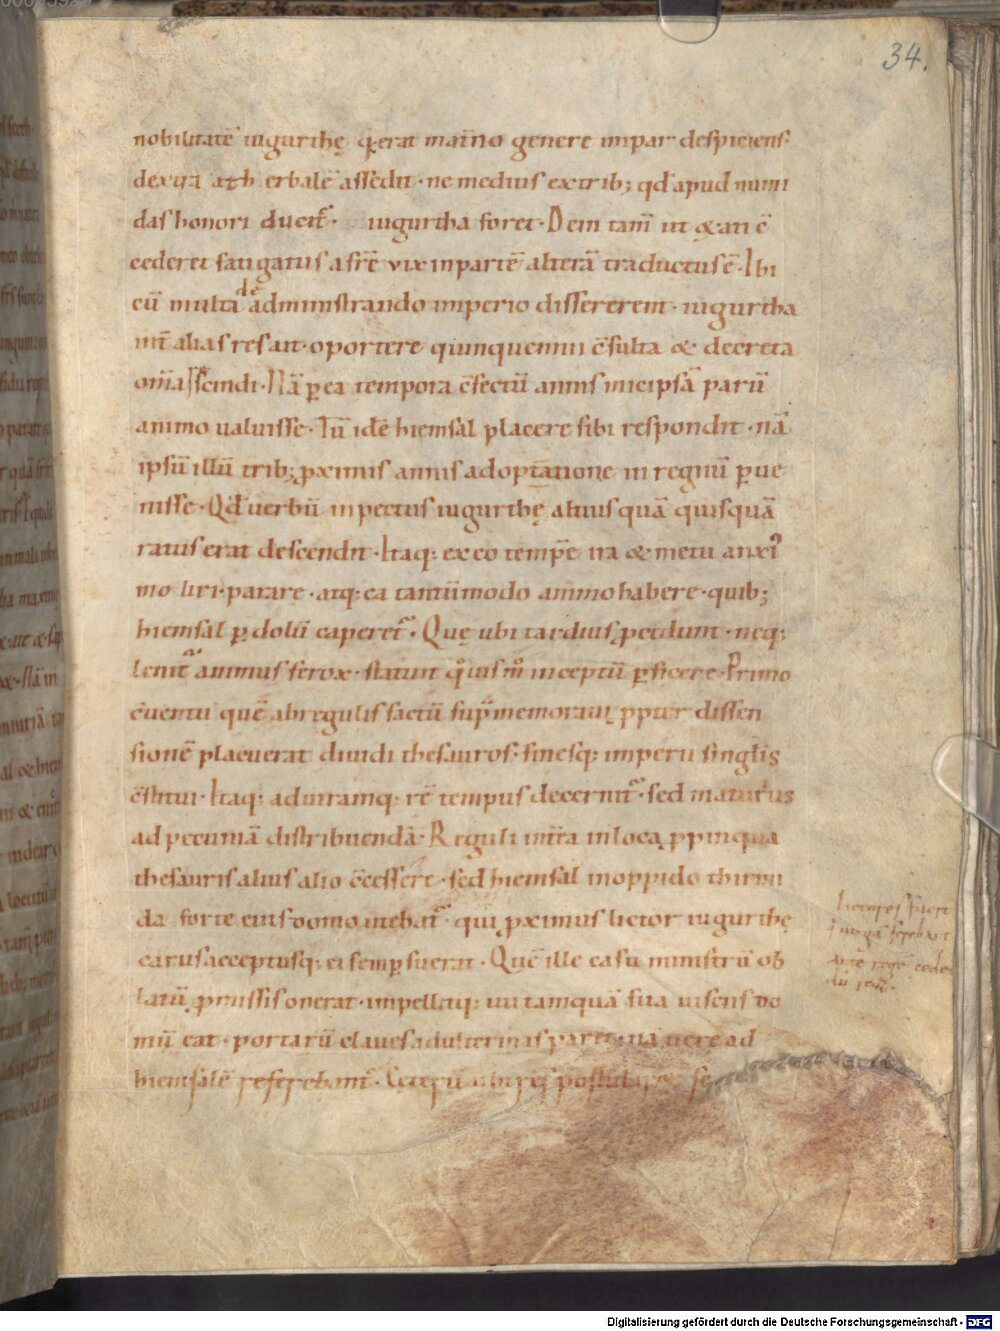 34.
nobilitatē iugurthę q̣ erat mat̄no genere impar despiciens·
dextra ath erbalē assedit· ne medius ex trib; qđ apud numi
das honori ducit᷑· iugurtha foret· Dein tam̄ ut &ati c̄
cederet fatigatus a fr̄e vix in partē alterā traductus ē· Ibi
cū multa de administrando imperio dissererent· iugurtha
int̄ alias res ait· oportere quinquennii c̄sulta & decreta
om̄ia rescindi· Nā p ea tempora c̄fectū annis micipsā parū
animo ualuisse· Tū idē hiemsal placere sibi respondit· nā
ipsū illū trib; p̱ximis annis adoptatione in regnū p̱ue
nisse· Qđ uerbū in pectus iugurthę altius quā quisquā
ratus erat descendit· Itaq; ex eo temp̄e ira & metu anxi᷑
moliri· parare· atq; ea tantūmodo animo habere· quib;
hiemsal p̱ dolū caperet᷑· Quę ubi tardius p̱cedunt· neq;
lenit᷑ animus ferox· statuit q̊uis m̊ inceptū p̱ficere· Primo
c̄uentu quē ab regulis factū sup̄ memoraui, pp̱ter dissen
sionē placuerat diuidi thesauros· finesq; imperii singlis
c̄stitui· Itaq; ad utramq· rē tempus decernit᷑· sed maturius
ad pecuniā distribuendā· Reguli int̄ea in loca p̱pinqua
thesauris alius alio c̄cessere· sed hiemsal in oppido thirmi
da forte eius domo utebat᷑· qui p̱ximus lictor iugurthę
carus acceptusq; ei semp̱ fuerat· Quē ille casu ministrū ob
latū p̱missis onerat· impellitq; uti tamquā sua uisens do
mū eat· portarū claues adulterinas paret· nā uere ad
hiemsalē referebant᷑· Ceterū ubi res postularet se
lictores
ante regē